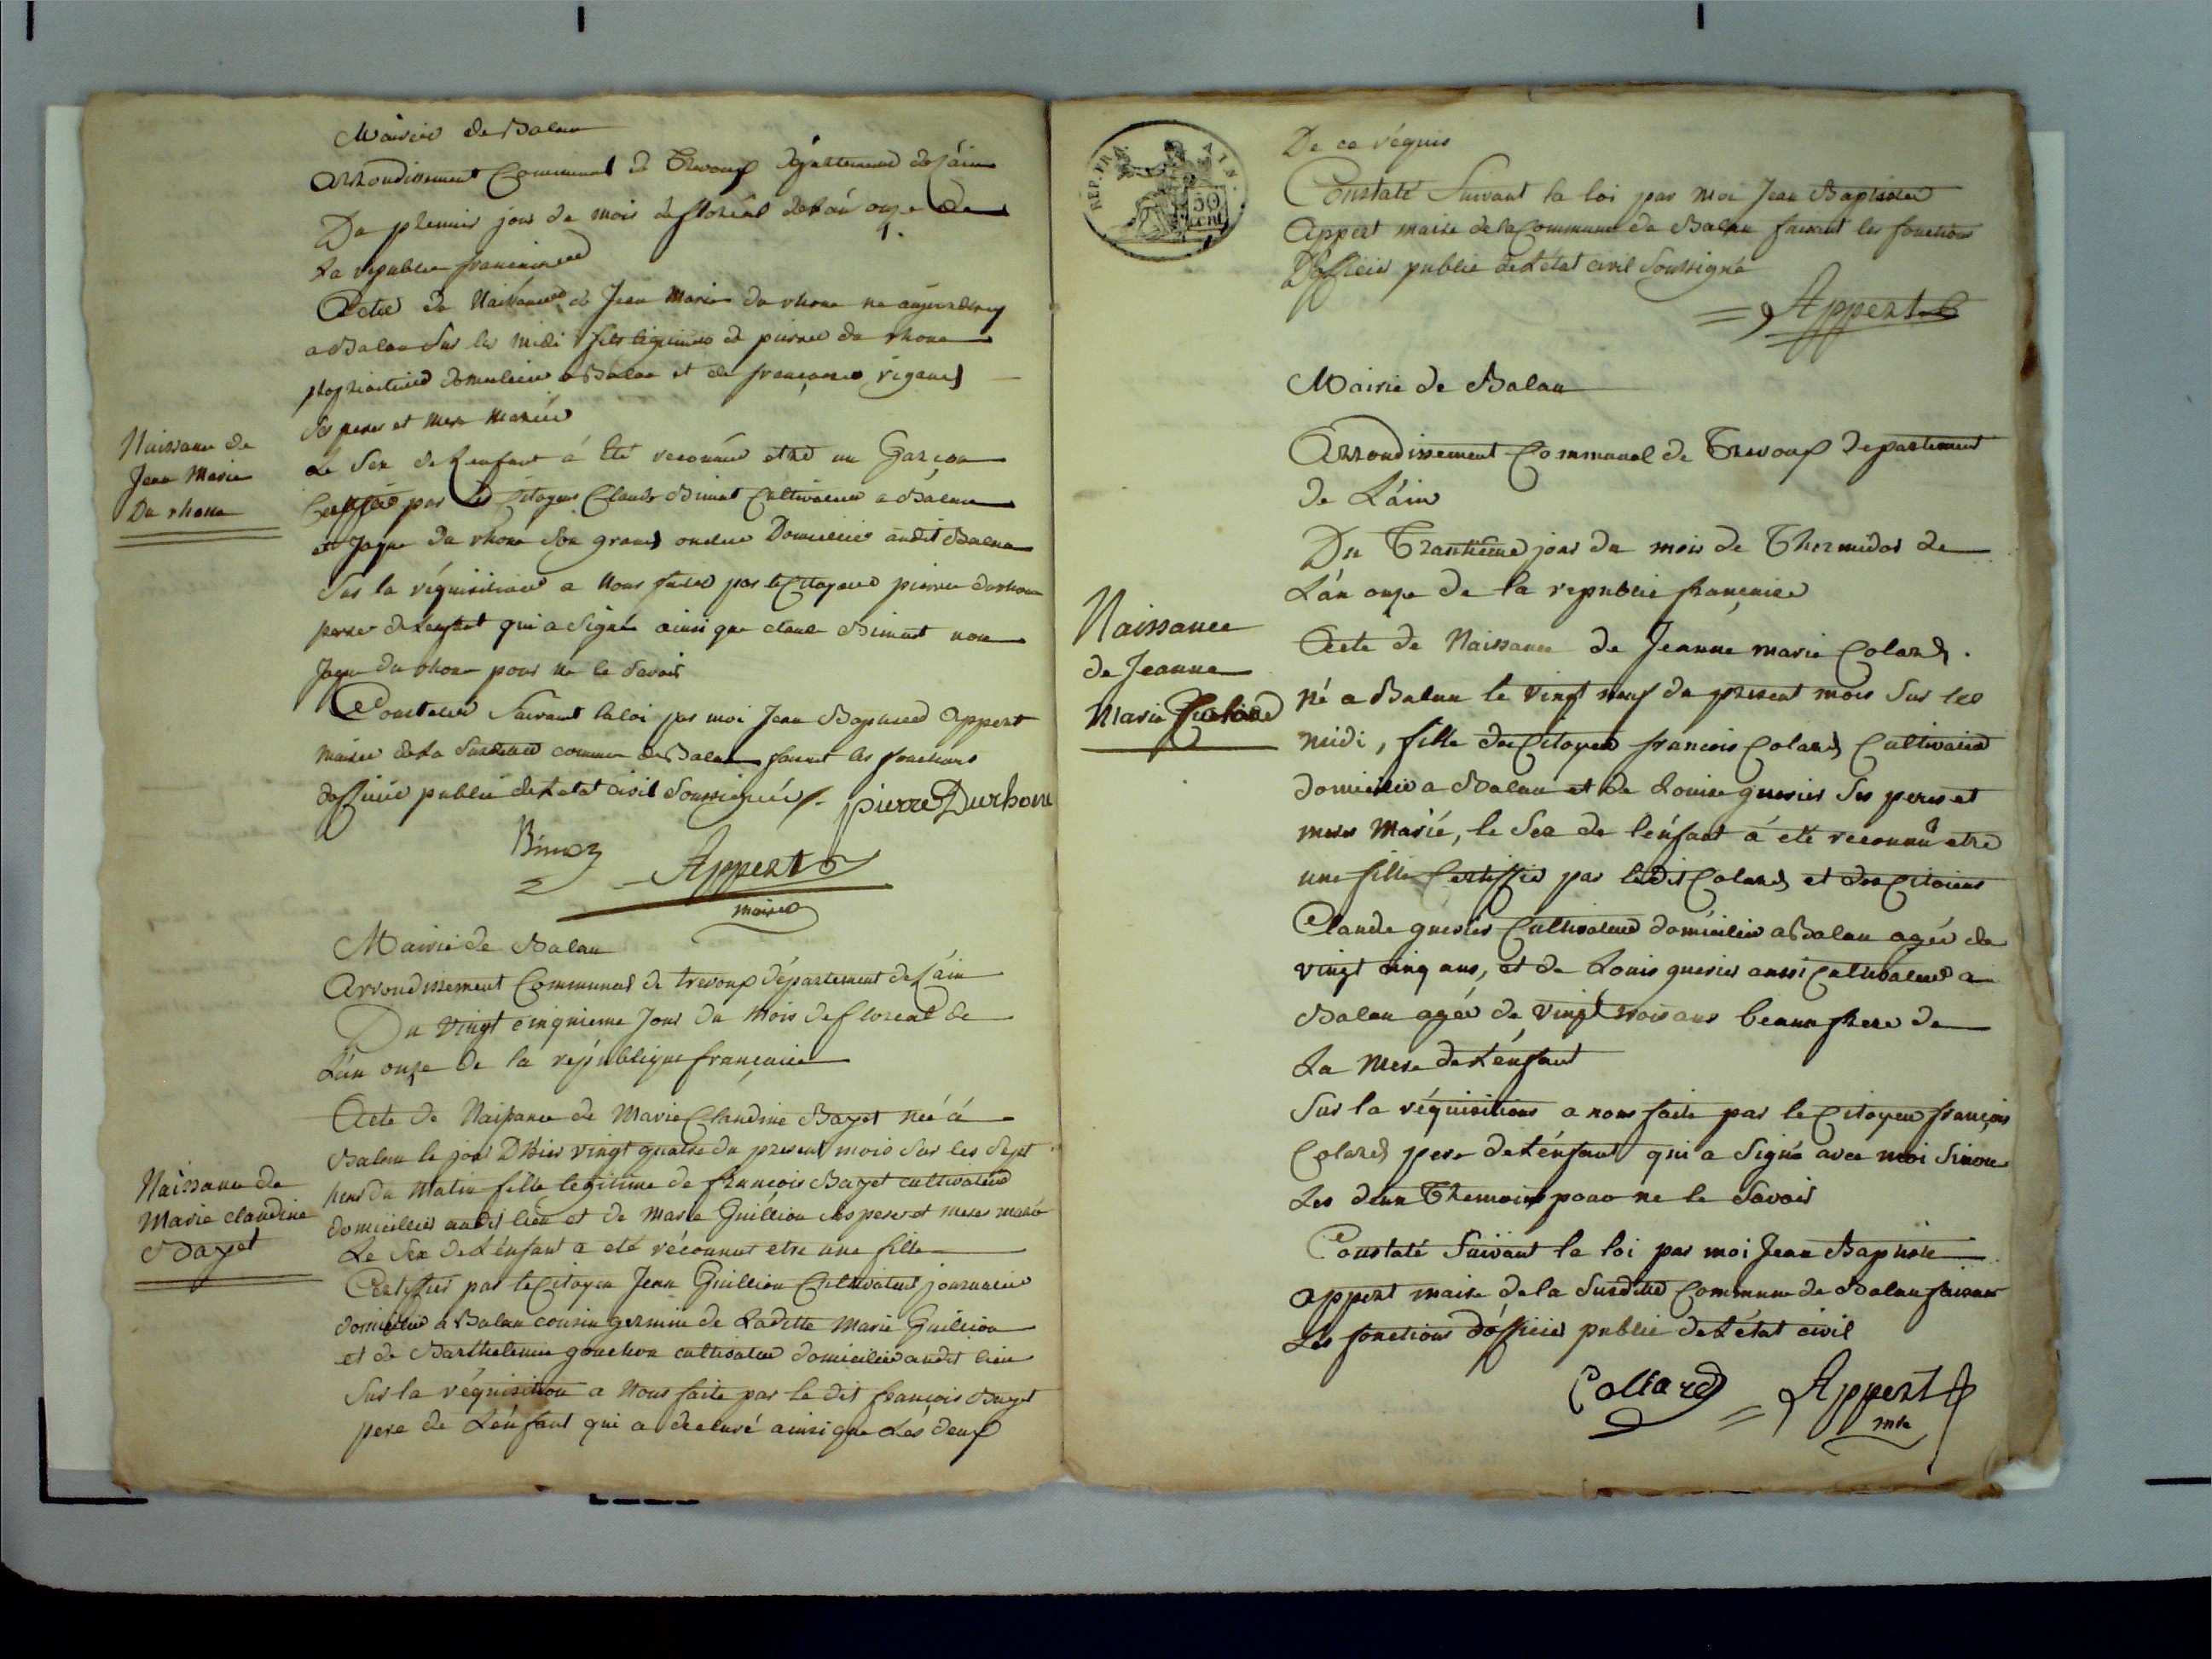 Mairie de Balan
Arrondissement Communal de Trevoux département de Láin
Du premier jour du mois de floréal de Lán onze de
La republic francaise
Acte de Naissance de Jean Marie du rhone né aujourdhuy
a Balan Sur les midi fils légitime de pierre du rhone
propriaitaire domicilié a Balan et de françoise rigaud
Ses peres et mere Mariés
Le Sex de Lenfant á été reconnue etre un Garçon
Certifié par Les Citoyens Claude Binat Cultivateur a Balan
et Jaque du rhone Son grand oncle Domicilié audit Balan
Sur la réquisition a Nous faite par le Citoyen pierre durhone
pere de Lenfant qui a Signé ainsi que claude Binat non
Jaque du rhone pour ne le Savoir
Constaté Suivant la loi par moi Jean Baptiste Appert
maire de La Susditte commune de Balan faisant les fonctions
dofficié public de Létat civil Soussignée
pierre Durhone
Appert
maire
Naissance de
Jean Marie
Du rhone
Mairie de Balan
Arrondissement Communal de trevoux département de Láin
Du Vingt cinquieme Jour du Mois de floreal de
Lán onze de la république françaice
Acte de Naissance de Marie Claudine Bayet neé á
Balan le jour D'hier vingt quatre du present mois Sur les Sept
heur du Matin fille legitime de francois Bayet cultivateur
domicillié audit lieu et de Marie Guillion Ses peres et meres marié
Le Sex de Lénfant a eté réconnut etre une fille
Certiffié par le Citoyen Jean Guillion Cultivateur journalié
domicilié a Balan cousin germain de Laditte Marie Guillion
et de Barthelemie gouchon cultivateur domicilié audit lieu
Sur la réquisition a Nous faite par le dit françois Bayet
pere de Lénfant qui a declaré ainsi que Lés deux
Naissance de
Marie claudine
Bayet
REP. FRA.
50
cent.
De ce réquis
Constaté Suivant la loi par moi Jean Baptiste
Appert maire de la Commune de Balan faisant les fonctions
D'officié public de Létat civil Soussigné
Appert
Mairie de Balan
Arrondissement Communal de Trevoux departement
de Láin
Du Trantième jour du mois de Thermidor de
Lán onze de la republic françaice
Acte de Naissance de Jeanne marie Colard
Né a Balan le vingt neuf du present mois Sur les
midi, fille du Citoyen francois Colard Cultivateur
domicilié a Balan et de Louise guerier Ses peres et
meres Marié, le Sex de lénfant á eté reconnu etre
une fille Certiffié par ledit Colard et des Citoiens
Claude guerier Cultivateur domicilié a Balan agée de
vingt cinq ans, et de Louis guerier aussi Cultivateur a
Balan agée de vingt trois ans beaux frere de
La Mere de Lénfant
Sur la réquisitions a nous faite par le Citoyen françois
Colard pere de Lénfant qui a Signé avec moi Sinon
Les deux Themoins pour ne le Savoir
Constaté Suivant la loi par moi Jean Baptiste
appert maire de la Susditte Commune de Balan faisant
Les fonctions d'officié public de Létat civil
Collard
Appert
mre
Naissance
de Jeanne
Marie